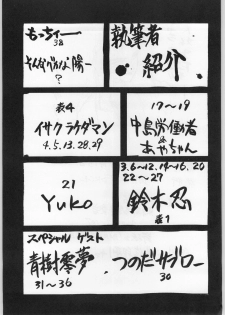 執筆者
紹介
もっちィー
38
そんなバカな陽一
?
17~19
中島労働者
&
あやちゃん
表4
イサクラケダマン
4.5.13.28.29
3.6~12.14~16.20
22~27
鈴木忍
表1
21
Yuko
スペシャル ゲスト
つのだサブロー
30
青樹零夢
31~36